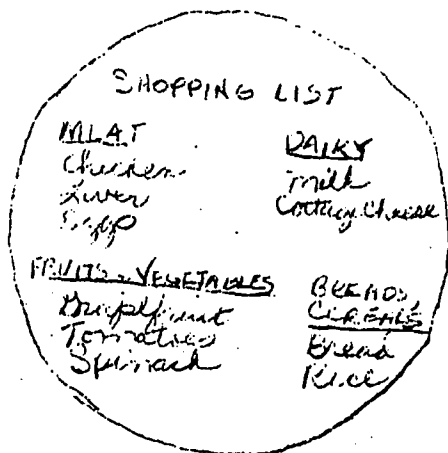 SHOPPING LIST
MEAT
Chicken
Liver
Eggs
DAIRY
Milk
Cottage Cheese
FRUITS & VEGETABLES
Grapefruit
Tomatoes
Spinach
BREADS,
CEREALS
Bread
Rice